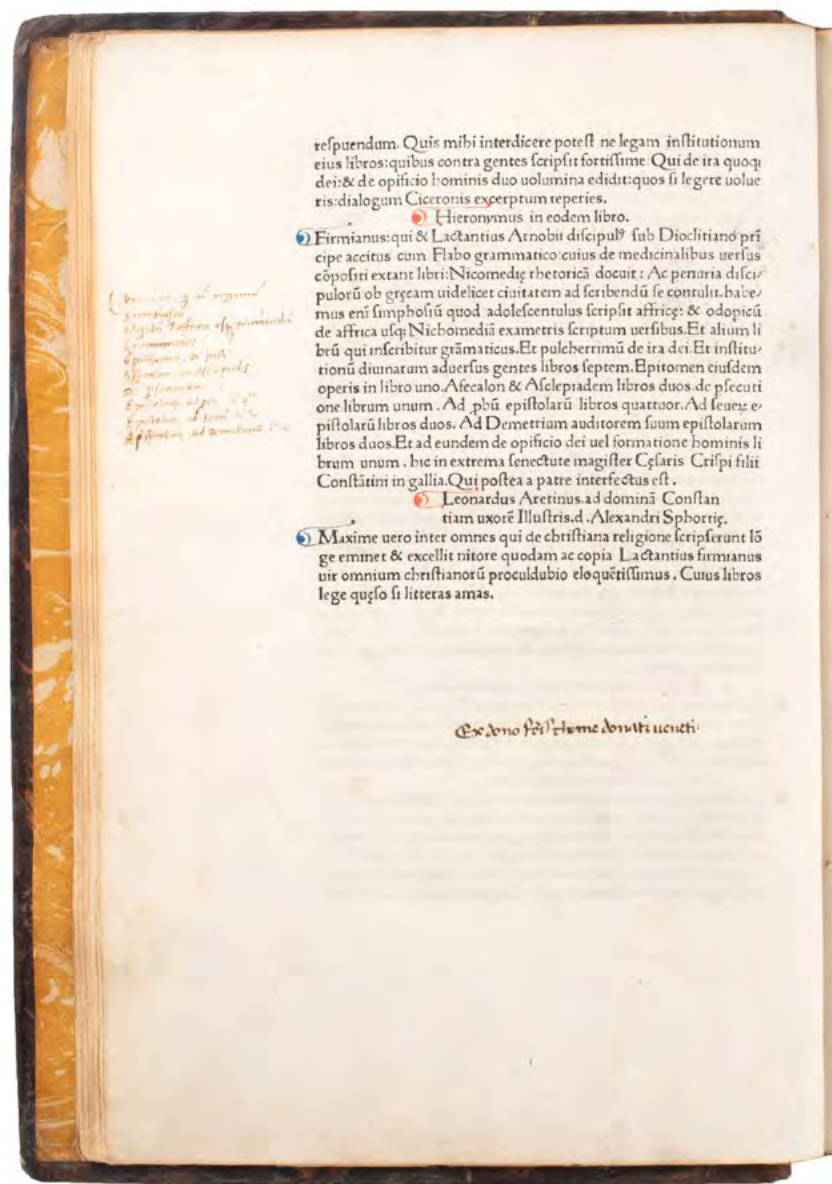 reſpuendum. Quis mihi interdicere poteſt ne legam inſtitutionum
eius libros:quibus contra gentes ſcripſit fortiſſime Qui de ira quoqꝫ
dei:& de opificio hominis duo uolumina edidit:quos ſi legere uolue
ris:dialogum Ciceronis excerptum reperies.
Hieronymus in eodem libro.
Firmianus:qui & Lactantius Arnobii diſcipulꝰ ſub Dioclitiano prī
cipe accitus cum Flabo grammatico:cuius de medicinalibus uerſus
cōpoſiti extant libri:Nicomedię rhetoricā docuit : Ac penuria diſci⸗
pulorū ob gręcam uidelicet ciuitatem ad ſcribendū ſe contulit.habe⸗
mus enī ſimphoſiū quod adoleſcentulus ſcripſit affricę: & odopicū
de affrica uſqꝫ Nichomediā exametris ſcriptum uerſibus.Et alium li
brū qui inſcribitur grāmaticus.Et pulcherrimū de ira dei.Et inſtitu⸗
tionū diuinarum aduerſus gentes libros ſeptem.Epitomen eiuſdem
operis in libro uno.Aſecalon & Aſclepiadem libros duos.de ꝑſecuti
one librum unum . Ad ꝓbū epiſtolarū libros quattuor.Ad ſeueꝝ e⸗
piſtolarū libros duos. Ad Demetrium auditorem ſuum epiſtolarum
libros duos.Et ad eundem de opificio dei uel formatione hominis li
brum unum . hic in extrema ſenectute magiſter Cęſaris Criſpi filii
Conſtātini in gallia.Qui poſtea a patre interfectus eſt .
Leonardus Aretinus.ad dominā Conſtan
tiam uxorē Illuſtris.d .Alexandri Sphortię.
Maxime uero inter omnes qui de chriſtiana religione ſcripſerunt lō
ge eminet & excellit nitore quodam ac copia Lactantius firmianus
uir omnium chriſtianorū proculdubio eloquētiſſimus . Cuius libros
lege quęſo ſi litteras amas.
Ex dono thome donati ueneti